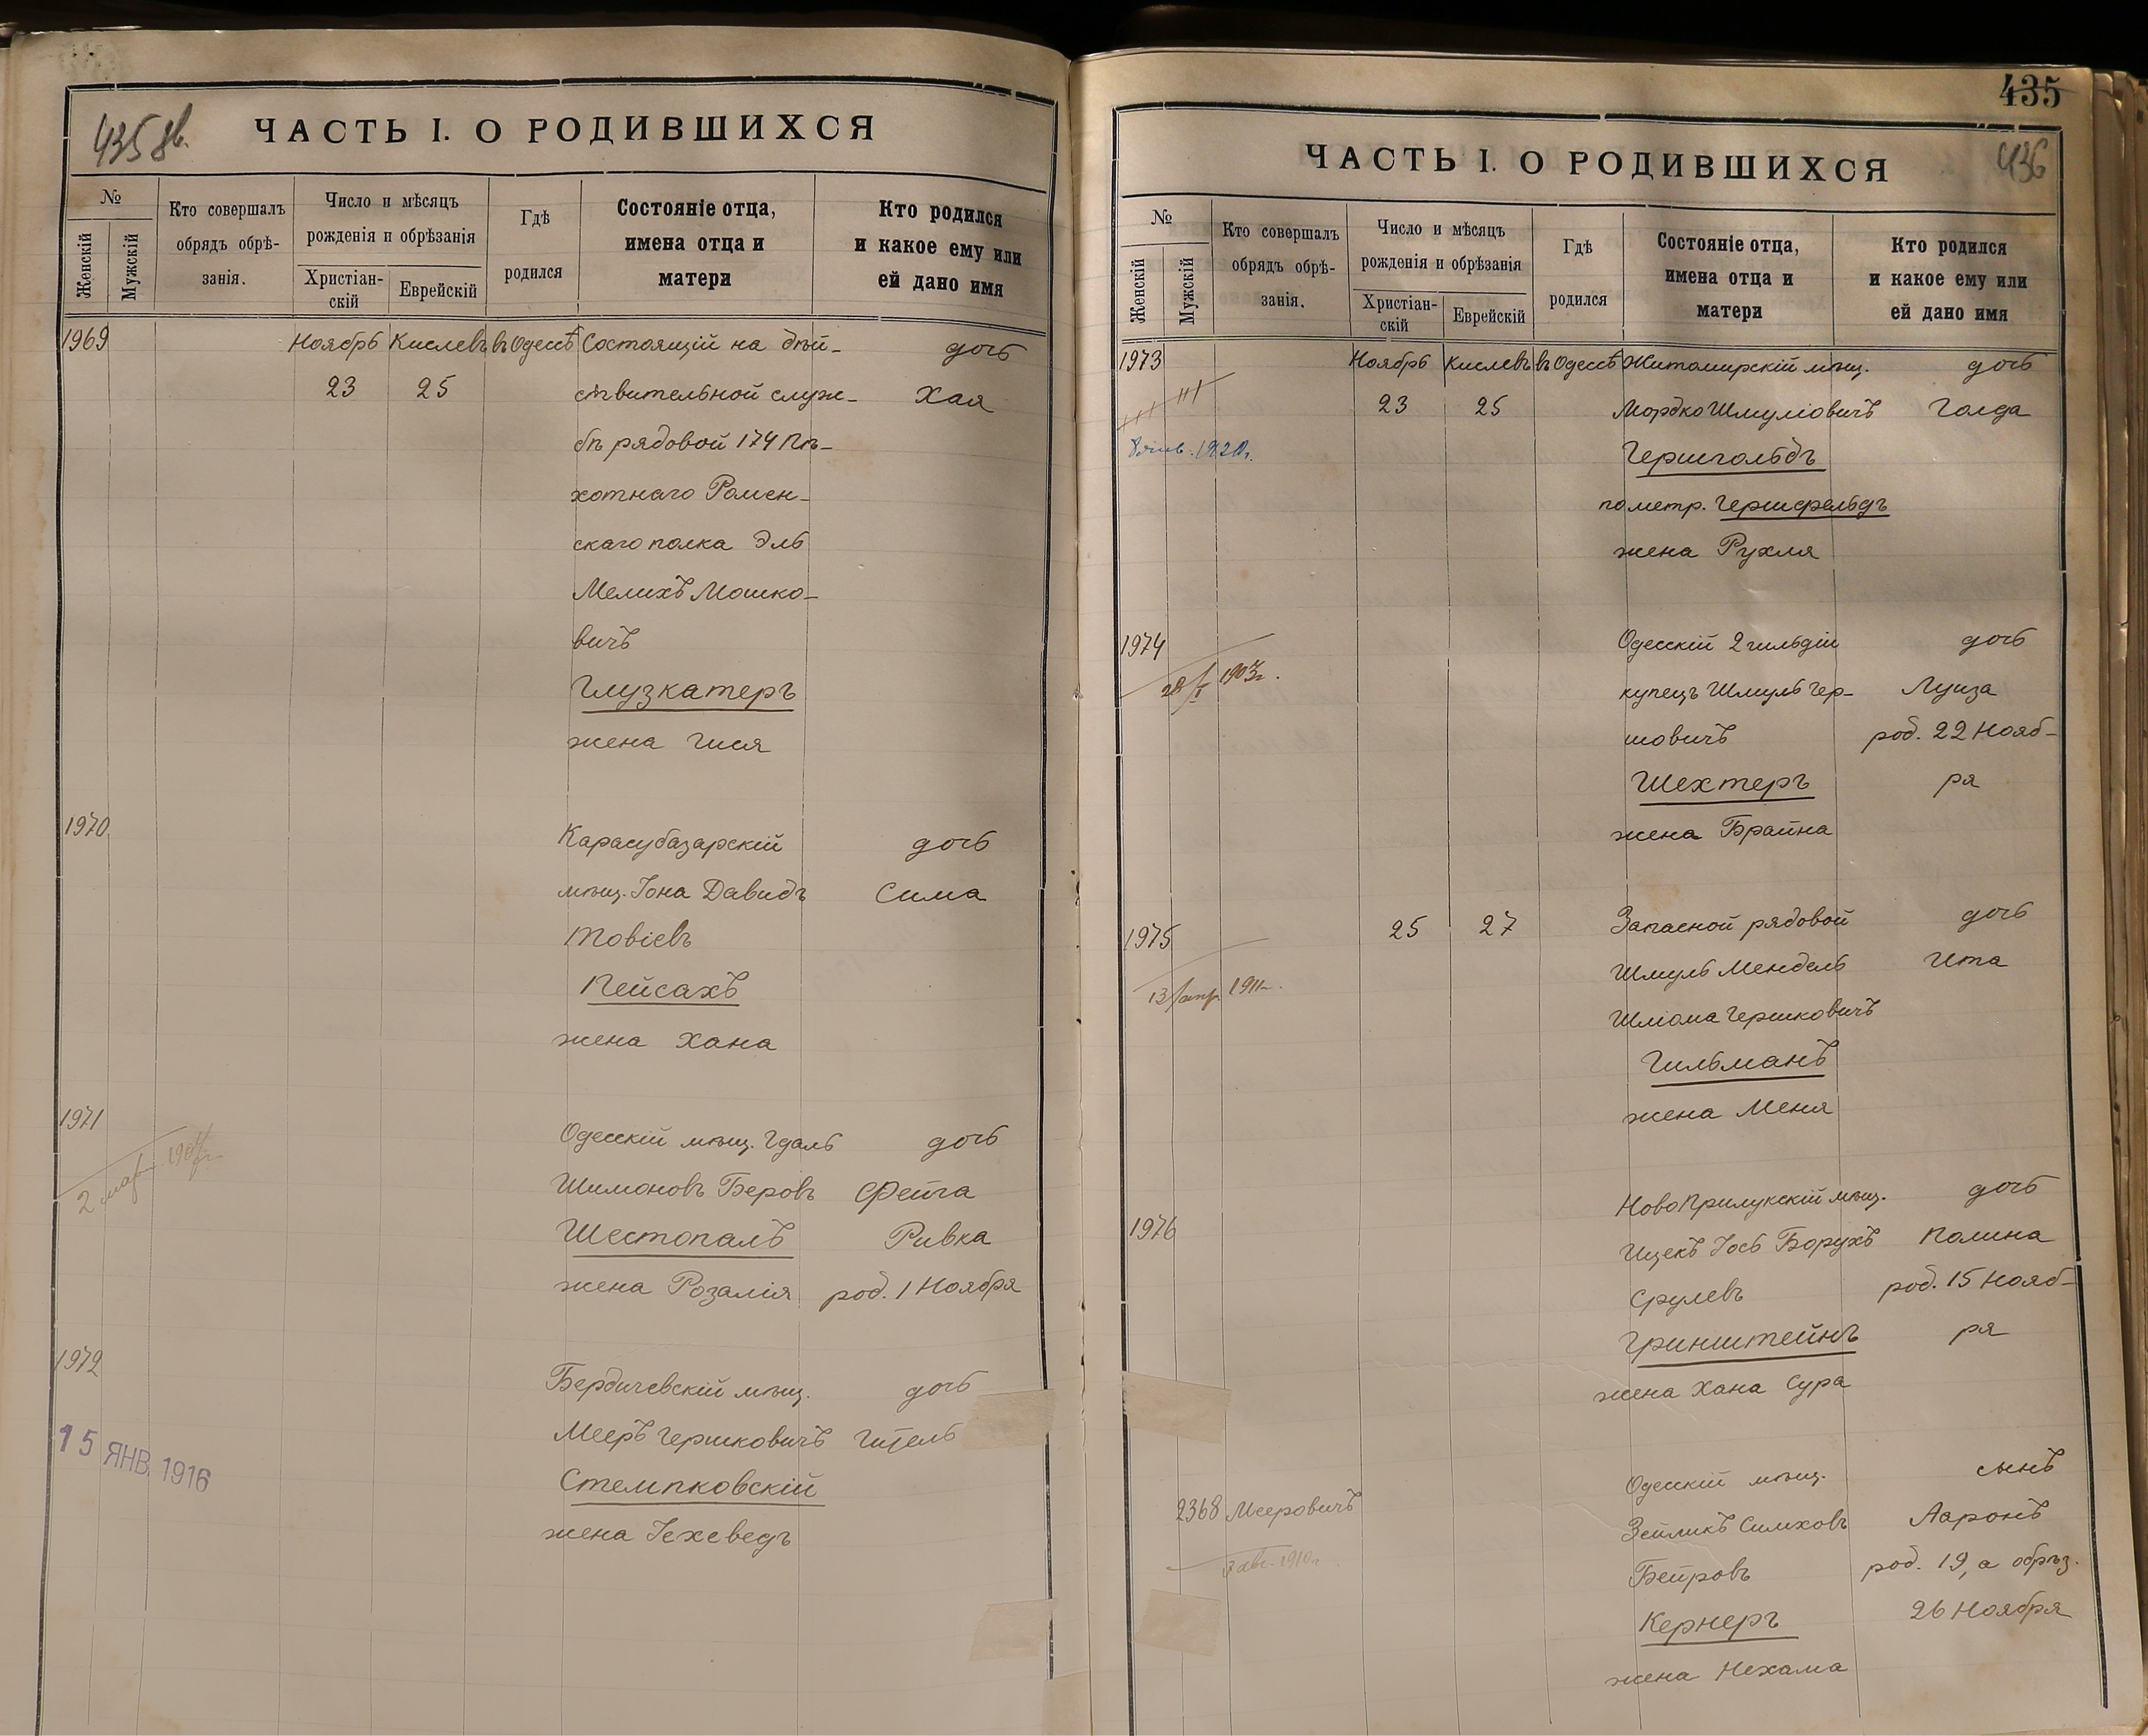 435 об.
ЧАСТЬ I. О РОДИВШИХСЯ
№
Женскій
Мужскій
Кто совершалъ
обрядъ обрѣ-
занія.
Число и мѣсяцъ
рожденія и обрѣзанія
Христіан-
скій
Еврейскій
Гдѣ
родился
Состояніе отца,
имена отца и
матери
Кто родился
и какое ему или
ей дано имя
1969 Ноябрь Кислевъ въ Одессѣ Состоящій на дѣй- дочь
23 25 ствительной служ- Хая
бѣ рядовой 174 Пѣ-
хотнаго Ромен-
скаго полка Эль
Мелихъ Мошко-
вичъ
Глузкатеръ
жена Гися
1970 Карасубазарскій дочь
мѣщ. Іона Давидъ Сима
Товіевъ
Пейсахъ
жена Хана
1971 Одесскій мѣщ. Гдаль дочь
2 мар.
Шимоновъ Беровъ Фейга
Шестопалъ Ривка
жена Розалія род. 1 Ноября
1972 Бердичевскій мѣщ. дочь
15 ЯНВ. 1916
Мееръ Гершковичъ Гитель
Стемпковскій
жена Іехеведъ
435
436
ЧАСТЬ I. О РОДИВШИХСЯ
№
Женскій
Мужскій
Кто совершалъ
обрядъ обрѣ-
занія.
Число и мѣсяцъ
рожденія и обрѣзанія
Христіан-
скій
Еврейскій
Гдѣ
родился
Состояніе отца,
имена отца и
матери
Кто родился
и какое ему или
ей дано имя
1973 Ноябрь Кислевъ въ Одессѣ Житомирскій мѣщ. дочь
23 25 Мордко Шмуліовичъ Голда
8 янв. 1920г.
Гершгольдъ
по метр. Гершфельдъ
жена Рухля
1974 Одесскій 2 гильдіи дочь
28/I 1903г.
купецъ Шмуль Гер- Луиза
шовичъ род. 22 Нояб-
Шехтеръ ря
жена Брайна
1975 25 27 Запасной рядовой дочь
13/апр. 1911г.
Шмуль Мендель Ита
Шліома Гершковичъ
Гильманъ
жена Меня
1976 Ново Прилукскій мѣщ. дочь
Ицекъ Іось Борухъ Полина
Срулевъ род. 15 Нояб-
Гринштейнъ ря
жена Хана Сура
2368 Мееровичъ Одесскій мѣщ. сынъ
3 авг. 1910г.
Зейликъ Симховъ Ааронъ
Бейровъ род. 19, а обрѣз.
Кернеръ 26 Ноября
жена Нехама